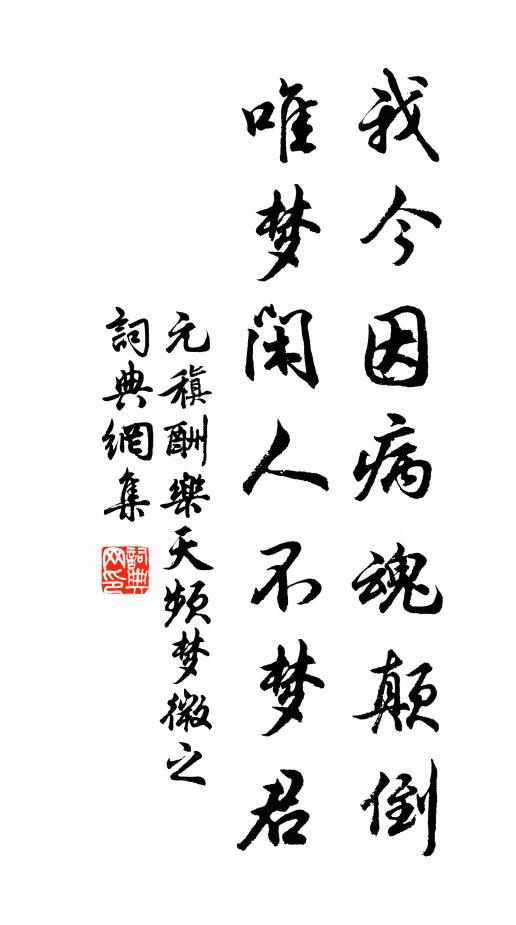 我今因病魂颠倒
唯梦闲人不梦君
元稹酬樂天频梦微之
詞典網集
詞典网印